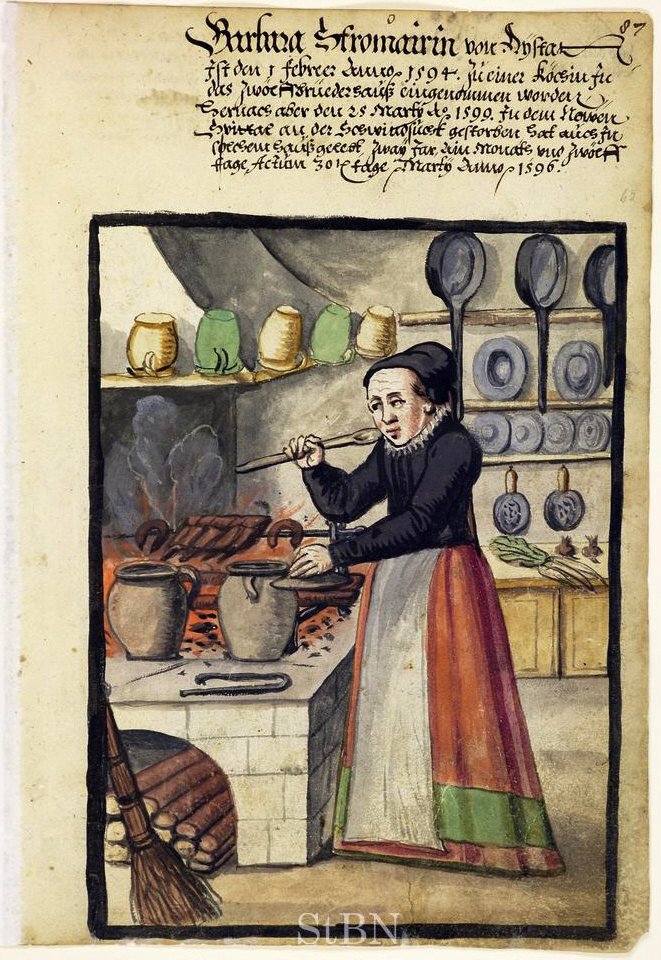 Barbara Stromairin von Dystat
87
Ist den 1 febrer Anno 1594. zu einer Köchin In
das zwölf Brüederhauß eingenomen worden
hernach aber den 25 Marty Ao. 1599. In dem Newen
Spittal an der Schwindsucht gestorben hat auch In
solchem hauß gelebt zway Jar, ain Monath und zwölff
tage, Actum 30 tage Marty Anno 1596.
StBN